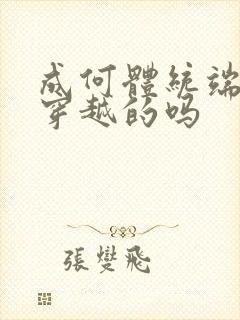 成何體統端
穿越的吗
張燮飛